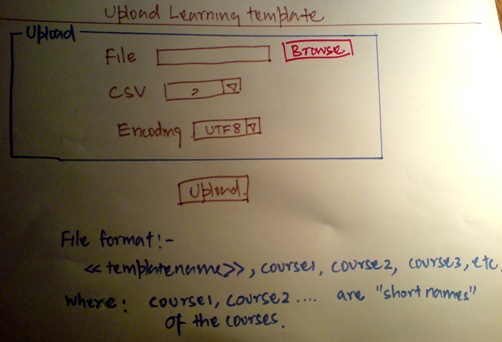 Upload Learning template
Upload
File Browse
CSV , ▽
Encoding UTF8 ▽
Upload.
File format:-
<<templatename>>, course1, course2, course3, etc,
Where: course1, course2 .... are "short names"
of the courses.